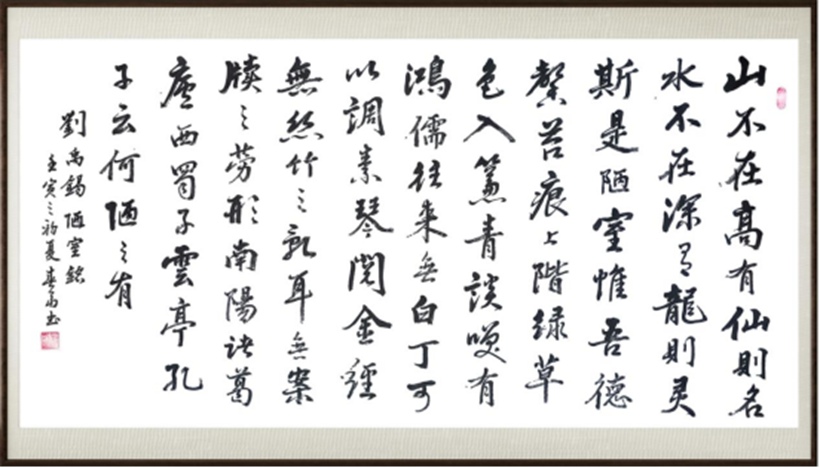 山不在高有仙則名
水不在深有龍則灵
斯是陋室惟吾德
馨苔痕上階緑草
色入簾青談笑有
鴻儒往来無白丁可
以調素琴閱金經
無絲竹之亂耳無案
牘之勞形南陽諸葛
廬西蜀子雲亭孔
子云何陋之有
劉禹錫陋室銘
壬寅之初夏春书